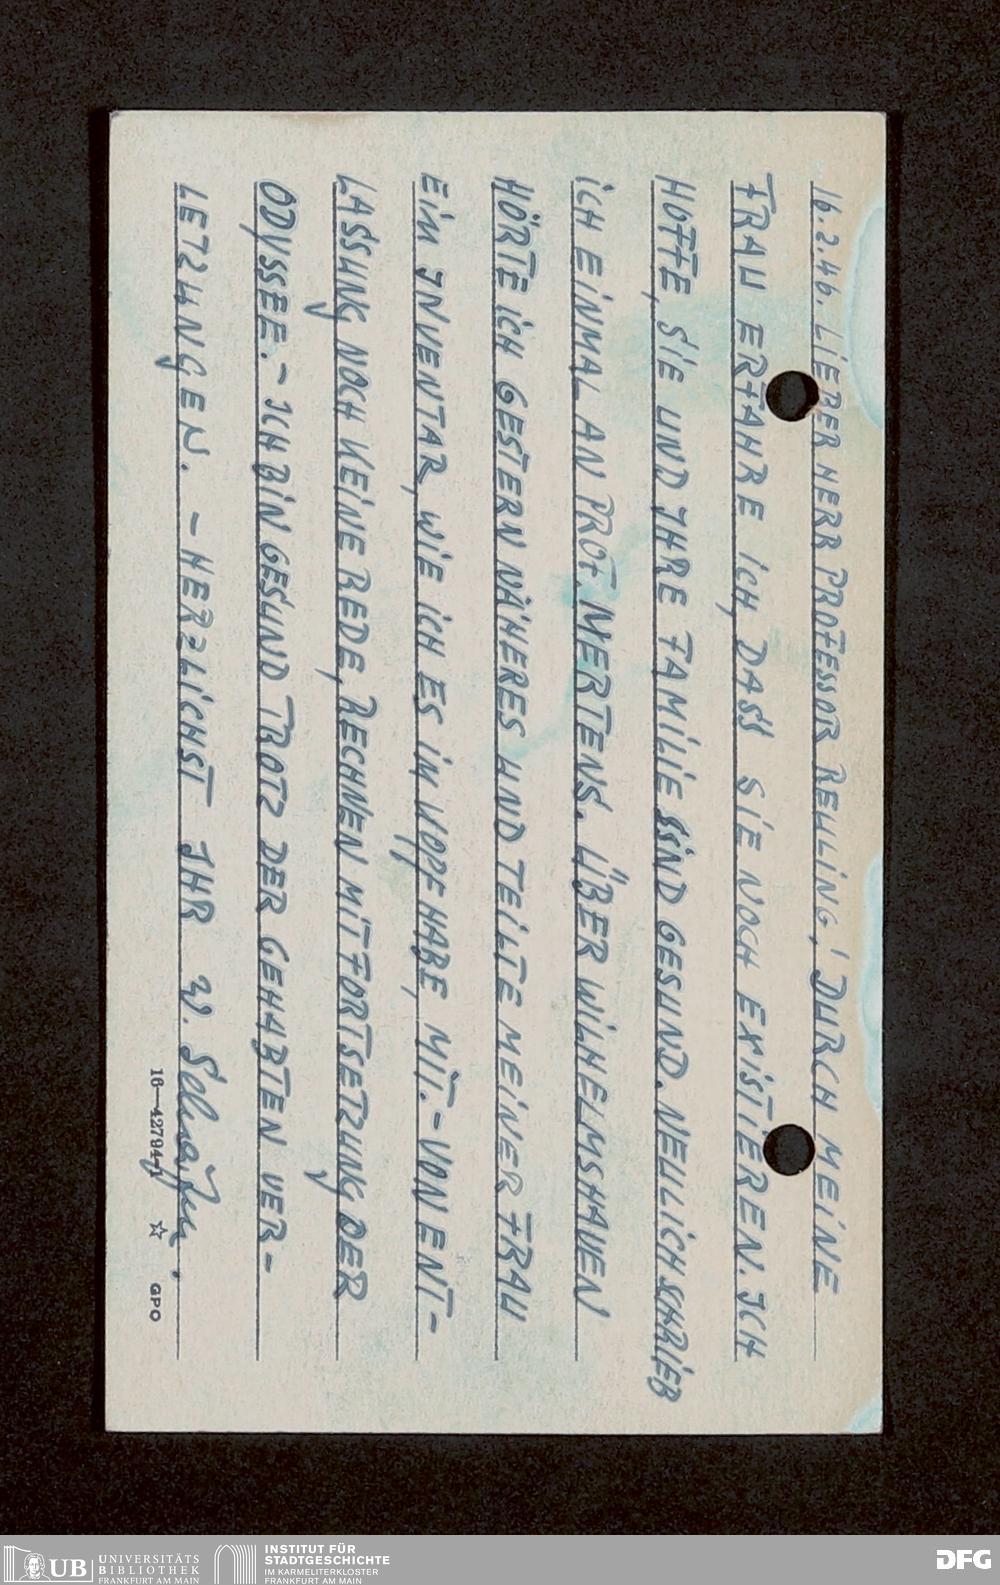 16.2.46. LIEBER HERR PROFESSOR REULING! DURCH MEINE
FRAU ERFAHRE ICH, DASS SIE NOCH EXISTIEREN. ICH
HOFFE, SIE UND IHRE FAMILIE SIND GESUND. NEULICH SCHRIEB
ICH EINMAL AN PROF. MERTENS. ÜBER WILHELMSHAVEN
HÖRTE ICH GESTERN NÄHERES UND TEILTE MEINER FRAU
EIN INVENTAR, WIE ICH ES IM KOPF HABE, MIT. - VON ENT-
LASSUNG NOCH KEINE REDE, RECHNEN MIT FORTSETZUNG DER
ODYSSEE. - ICH BIN GESUND TROTZ DER GEHABTEN VER-
LETZUNGEN. - HERZLICHST IHR W. Schäfer.
16—42794-1 ☆ GPO
UB UNIVERSITÄTS
BIBLIOTHEK
FRANKFURT AM MAIN
INSTITUT FÜR
STADTGESCHICHTE
IM KARMELITERKLOSTER
FRANKFURT AM MAIN
DFG